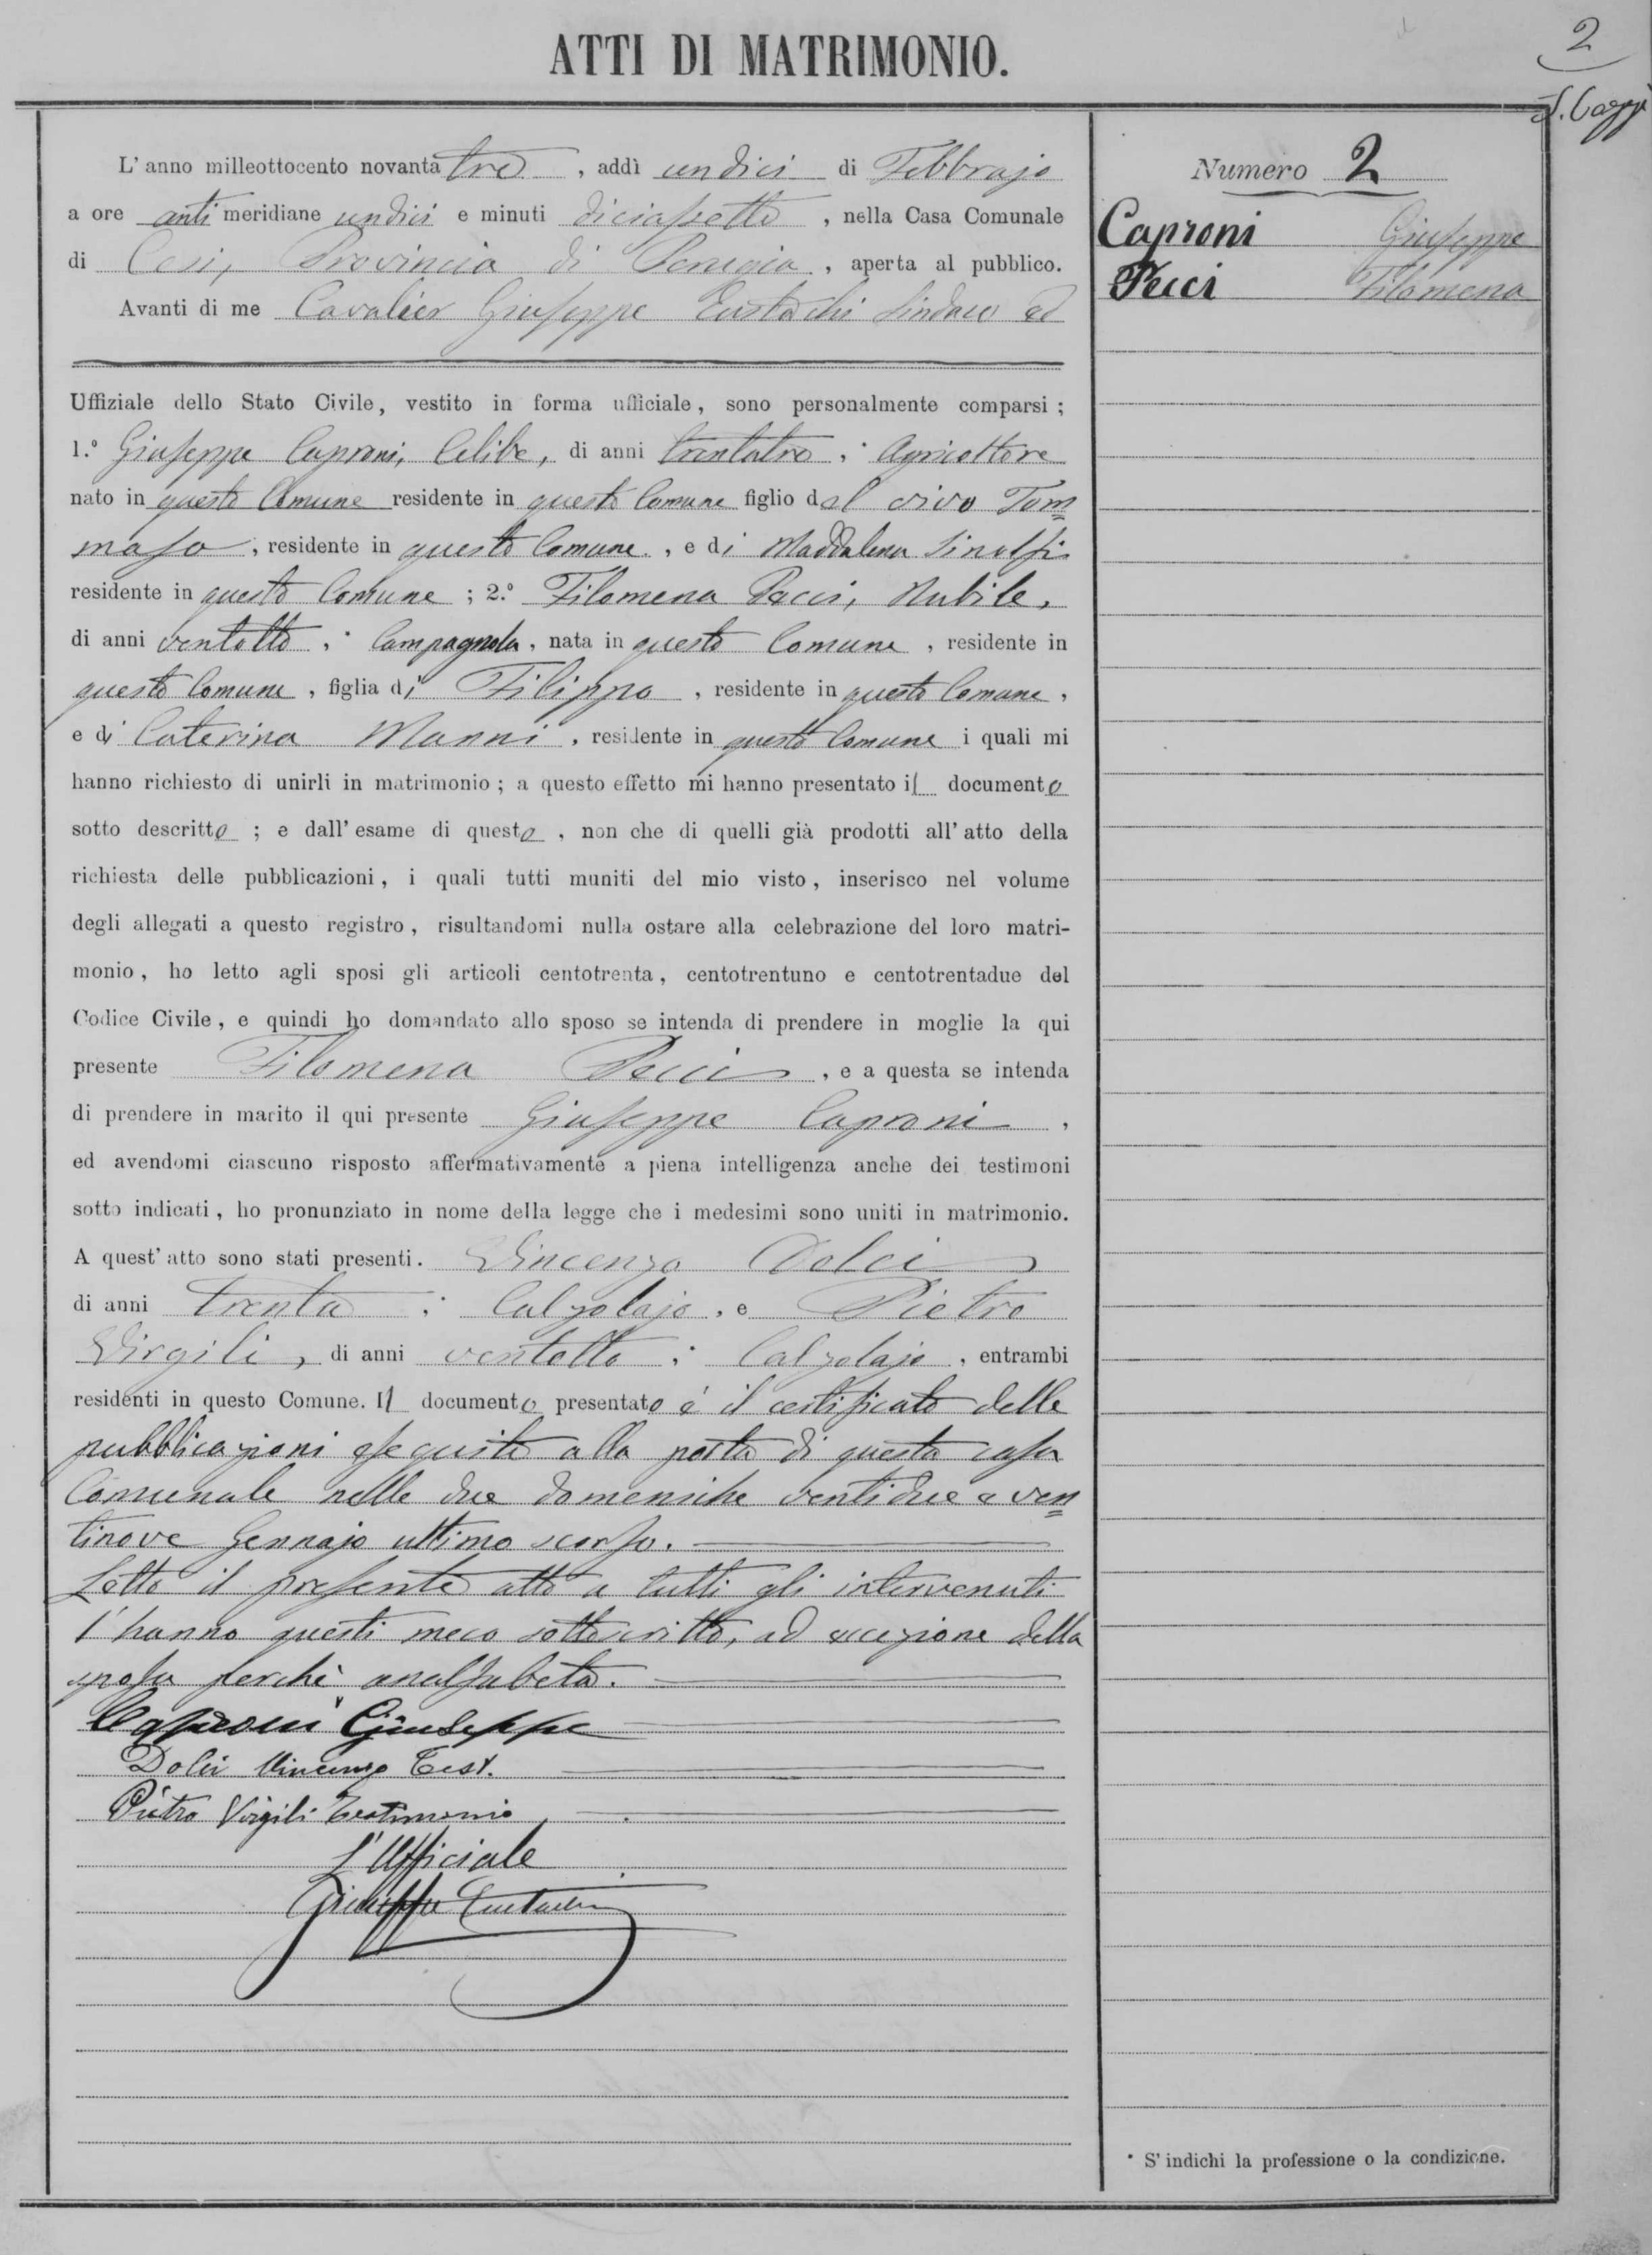 ATTI DI MATRIMONIO.
2
L' anno milleottocento novanta tre , addì undici di Febbrajo
a ore anti meridiane undici e minuti diciassette , nella Casa Comunale
di Cesi, Provincia di Perugia , aperta al pubblico.
Avanti di me Cavalier Giuseppe Eustachi Sindaco ed
Uffiziale dello Stato Civile, vestito in forma ufficiale, sono personalmente comparsi ;
1.° Giuseppe Caproni, Celibe, di anni trentatre , * Agricoltore
nato in questo Comune residente in questo Comune figlio del vivo Tom=
maso , residente in questo Comune , e di Maddalena
residente in questo Comune ; 2.° Filomena Pecci, Nubile,
di anni ventotto , * Campagnola , nata in questo Comune , residente in
questo Comune , figlia di Filippo , residente in questo Comune ,
e di Caterina Manni , residente in questo Comune i quali mi
hanno richiesto di unirli in matrimonio ; a questo effetto mi hanno presentato il documento
sotto descritto ; e dall' esame di questo , non che di quelli già prodotti all' atto della
richiesta delle pubblicazioni , i quali tutti muniti del mio visto , inserisco nel volume
degli allegati a questo registro , risultandomi nulla ostare alla celebrazione del loro matri-
monio , ho letto agli sposi gli articoli centotrenta , centotrentuno e centotrentadue del
Codice Civile , e quindi ho domandato allo sposo se intenda di prendere in moglie la qui
presente Filomena Pecci , e a questa se intenda
di prendere in marito il qui presente Giuseppe Caproni ,
ed avendomi ciascuno risposto affermativamente a piena intelligenza anche dei testimoni
sotto indicati , ho pronunziato in nome della legge che i medesimi sono uniti in matrimonio.
A quest' atto sono stati presenti. Vincenzo Dolci
di anni trenta , * Calzolajo , e Pietro
Virgili , di anni ventotto , * Calzolajo , entrambi
residenti in questo Comune. Il documento presentato è il certificato delle
pubblicazioni eseguite alla porta di questa casa
Comunale nelle due domeniche ventidue e ven=
tinove Gennajo ultimo scorso.
Letto il presente atto a tutti gli intervenuti
l'hanno questi meco sottoscritto, ad eccezione della
sposa perchè analfabeta.
Caproni Giuseppe
Dolci Vincenzo Test.
Pietro Virgili Testimonio
L'Ufficiale
Giuseppe Eustachi
Numero 2
Caproni Giuseppe
Pecci Filomena
* S' indichi la professione o la condizione.